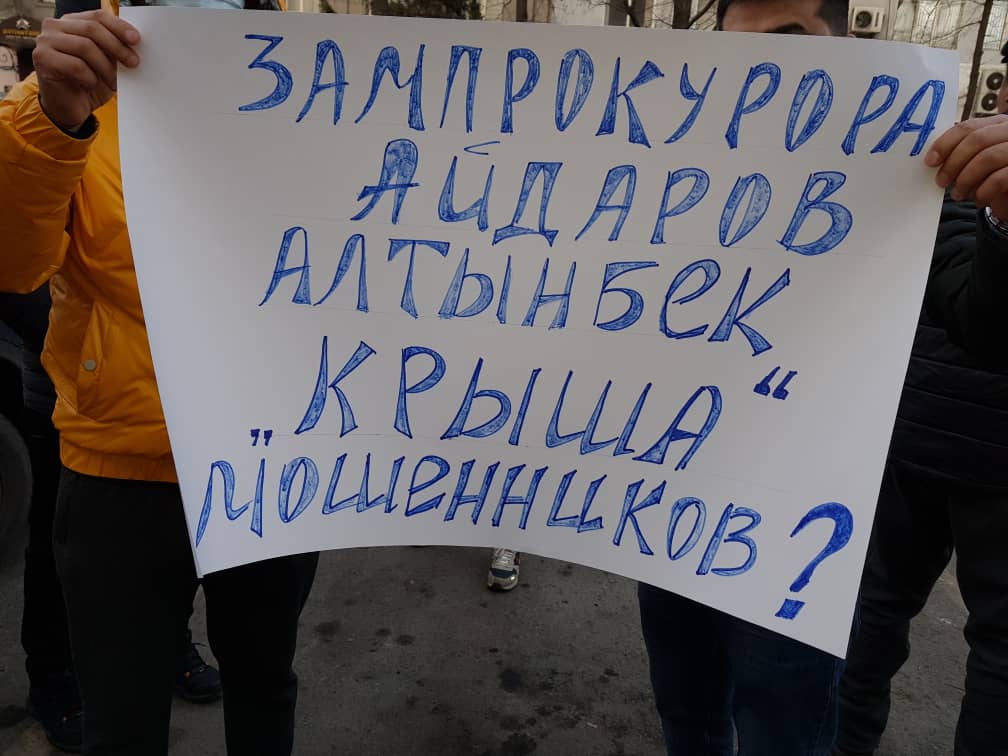 ЗАМПРОКУРОРА
АЙДАРОВ
АЛТЫНБЕК
„КРЫША“
МОШЕННЦКОВ?